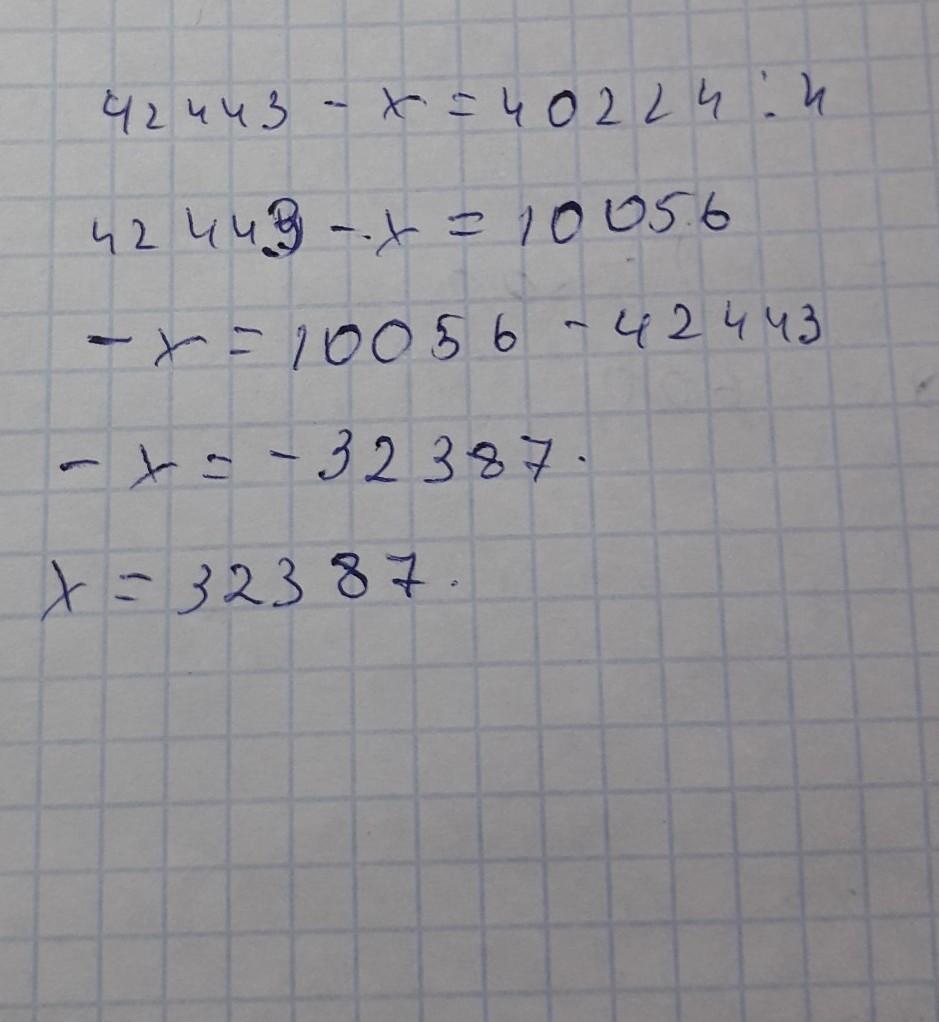 42443 - x = 40224 : 4
42443 - x = 10056
- x = 10056 - 42443
- x = - 32387.
x = 32387.